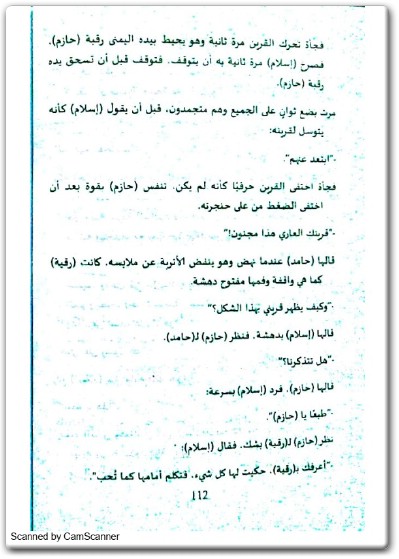 فجأة تحرك القرين مرة ثانية وهو يحيط بيده اليمنى رقبة (حازم).
فصرخ (إسلام) مرة ثانية به أن يتوقف. فتوقف قبل أن تسحق يده
رقبة (حازم).
مرت بضع ثوانٍ على الجميع وهم متجمدون، قبل أن يقول (إسلام) كأنه
يتوسل لقرينه:
-"ابتعد عنهم".
فجأة اختفى القرين حرفيًا كأنه لم يكن. تنفس (حازم) بقوة بعد أن
اختفى الضغط من على حنجرته.
-"قرينك العاري هذا مجنون!"
قالها (حامد) عندما نهض وهو ينفض الأتربة عن ملابسه. كانت (رقية)
كما هي واقفة وفمها مفتوح دهشة.
-"وكيف يظهر قريني بهذا الشكل؟"
قالها (إسلام) بدهشة. فنظر (حازم) لـ(حامد).
-"هل تتذكرنا؟"
قالها (حازم). فرد (إسلام) بسرعة:
-"طبعًا يا (حازم)".
نظر (حازم) لـ(رقية) بشك. فقال (إسلام):
-"أعرفك بـ(رقية). حكيت لها كل شيء. فتكلم أمامها كما تُحب".
112
Scanned by CamScanner